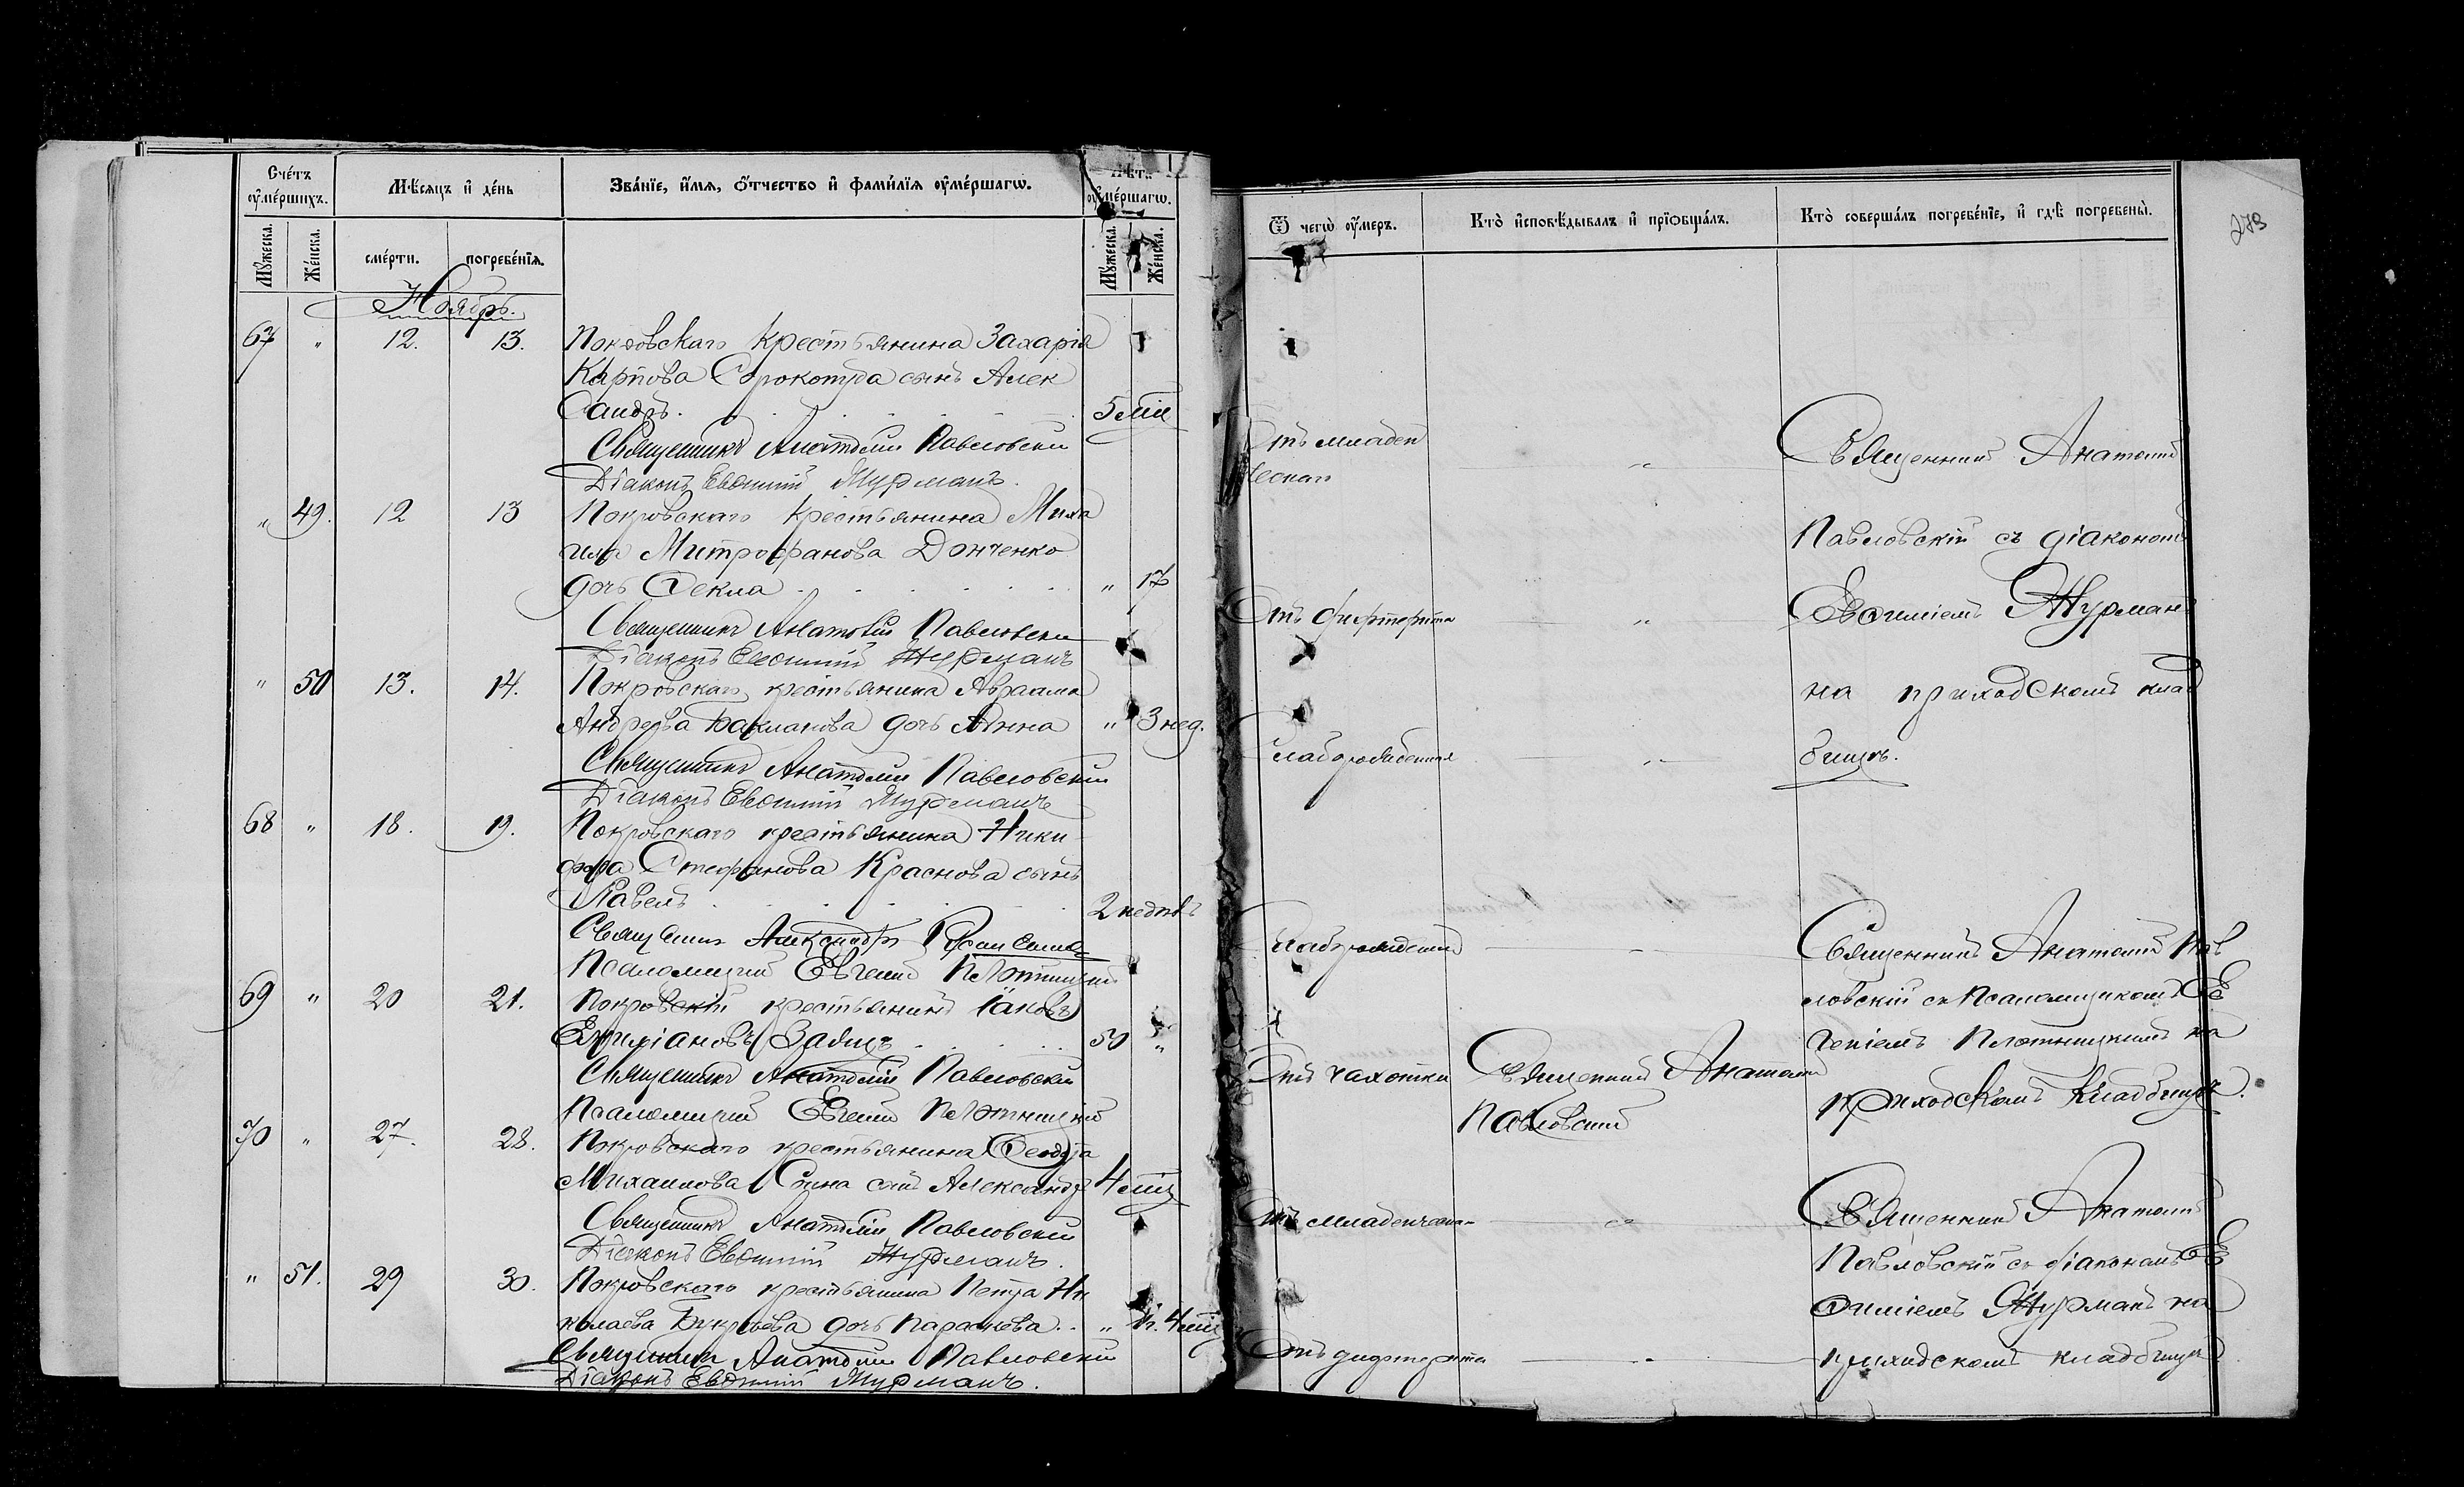 Счетъ умершихъ.
Мѣсяцъ и день
Званїе, имя, отчество и фамилїя умершагѡ.
Лѣт. умершагѡ.
Мужеска. Женска.
смерти. погребенїя.
Мужеска. Женска.
Ноябрь.
67 " 12. 13. Покровскаго крестьянина Захарія
Карпова Сорокотуда сынъ Алек
сандръ. 5 мѣс
Священникъ Анатолій Павловскій
Діаконъ Евѳимій Журманъ.
" 49. 12 13 Покровскаго крестьянина Миха
ила Митрофанова Донченко
дочь Ѳекла " 17
Священникъ Анатолій Павловскій
Діаконъ Евѳимій Журманъ
" 50 13. 14. Покровскаго крестьянина Авраама
Андреева Бакланова дочь Анна " 3 нед.
Священникъ Анатолій Павловскій
Діаконъ Евѳимій Журманъ
68 " 18. 19. Покровскаго крестьянина Ники
фора Стефанова Краснова сынъ
Павелъ 2 недѣль
Священ Александръ
Псаломщикъ Евгеній Плотницкій
69 " 20 21. Покровскій крестьянинъ Іаковъ
Емиліановъ Заяцъ 50 "
Священникъ Анатолій Павловскій
Псаломщикъ Евгеній Плотницкій
70 " 27. 28. Покровскаго крестьянина Ѳеодора
Михаилова сынъ Александръ 4 мѣс
Священникъ Анатолій Павловскій
Діаконъ Евѳимій Журманъ.
" 51. 29 30. Покровскаго крестьянина Петра Ни
колаева дочь Параскева. " 1 г. 4 мѣс
Священникъ Анатолій Павловскій
Діаконъ Евѳимій Журманъ.
Ѿ чегѡ умеръ.
Кто исповѣдывалъ и прїобщалъ.
Кто совершалъ погребенїе, и гдѣ погребены.
273
Отъ младен
ческаго "
Священникъ Анатолій
Павловскій съ діакономъ
Отъ дифтерита "
Евѳиміемъ Журманъ
на приходскомъ клад
Слаборожденная "
бищѣ.
Слаборожденный
Священникъ Анатолій Пав
ловскій съ Псаломщикомъ Ев
геніемъ Плотницкимъ на
приходскомъ кладбищѣ.
Отъ чахотки Священникъ Анатолій
Павловскій
Отъ младенческаго "
Священникъ Анатолій
Павловскій съ діакономъ Ев
ѳиміемъ Журманъ на
Отъ дифтерита "
приходскомъ кладбищѣ